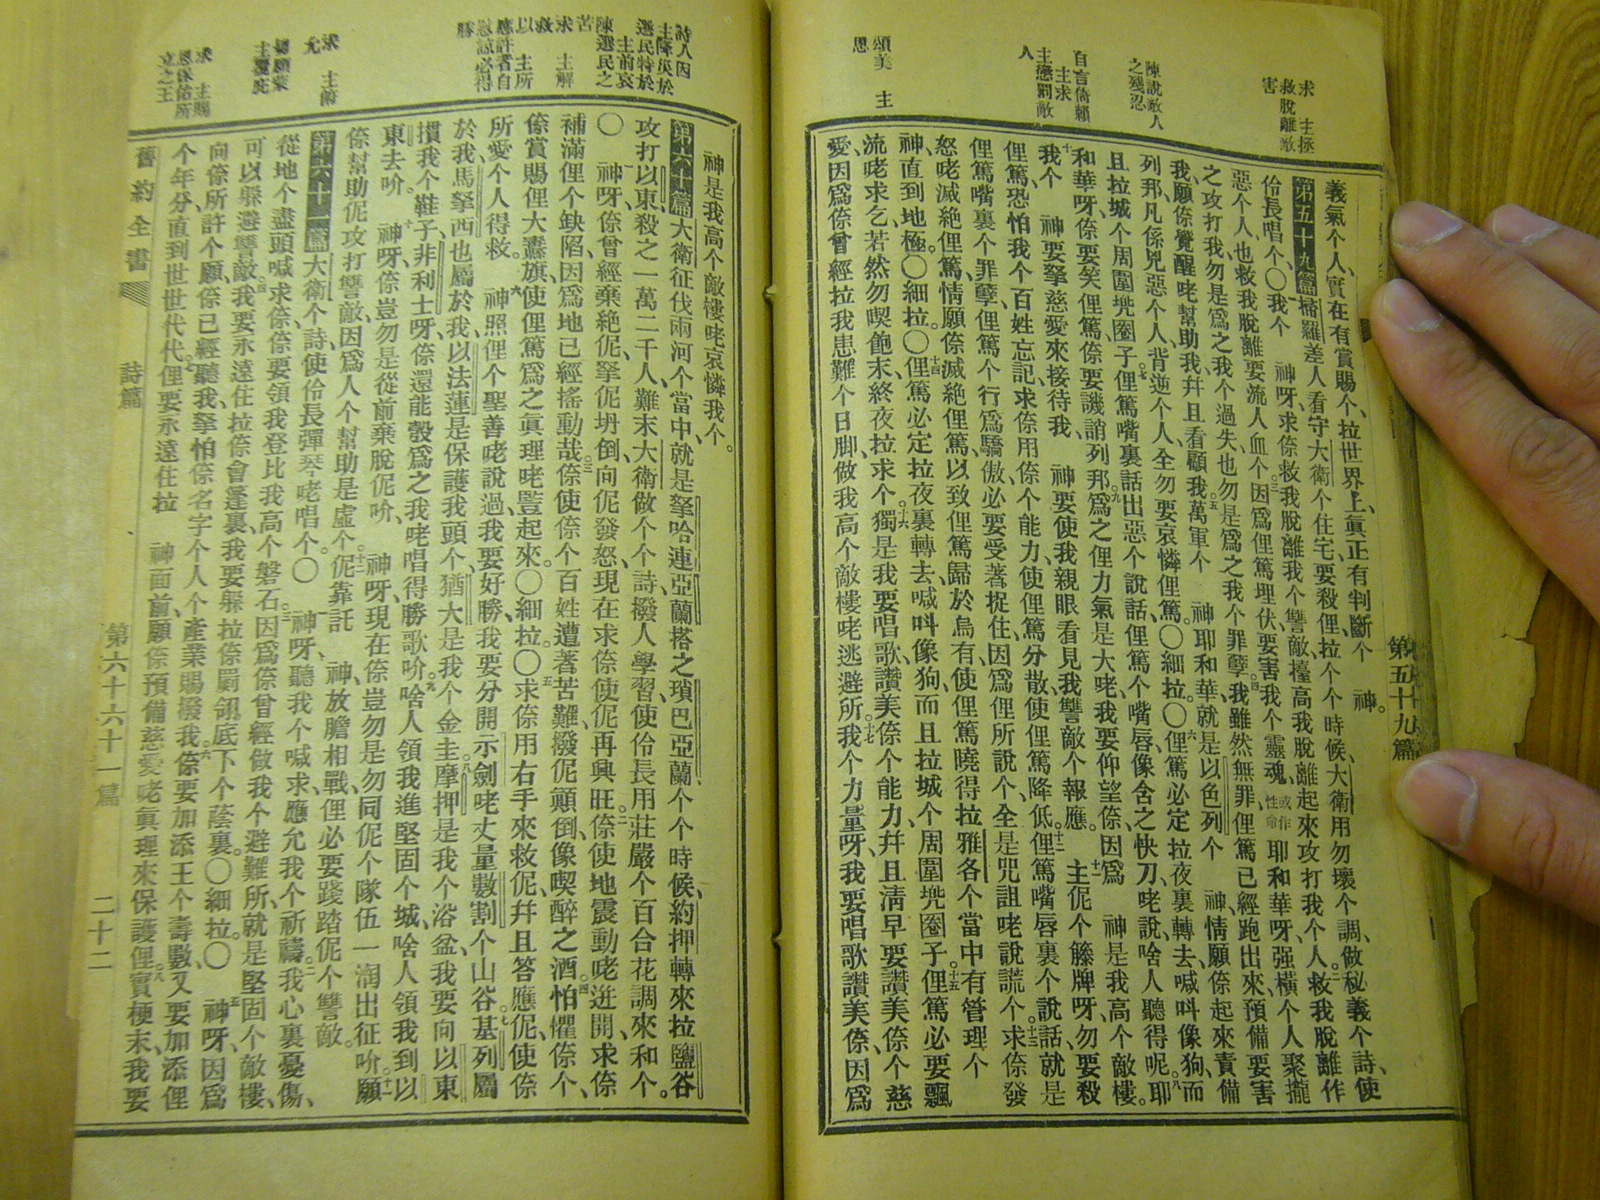 求　主拯
救脫離敵
害
陳說敵人
之殘忍
自言倚賴
主求
主懲罰敵
人
頌美　主
恩
第五十九篇
義氣个人、實在有賞賜个、拉世界上、眞正有判斷个　神。
第五十九篇 掃羅差人看守大衛个住宅、要殺俚拉个个時候、大衛用勿壞个調、做秘義个詩、使
伶長唱个○我个　神呀、求倷救我脫離我个讐敵、擡高我脫離起來攻打我个人、救我脫離作
惡个人、也救我脫離要流人血个、因爲俚篤埋伏、要害我个靈魂、或作性命 耶和華呀、强橫个人聚攏
之攻打我、勿是爲之我个過失、也勿是爲之我个罪孽、我雖然無罪、俚篤已經跑出來、預備要害
我、願倷覺醒咾幫助我、幷且看顧我、萬軍个　神耶和華、就是以色列个　神、情願倷起來責備
列邦、凡係兇惡个人、背逆个人、全勿要哀憐俚篤、○細拉。○俚篤必定拉夜裏轉去、喊呌像狗、而
且拉城个周圍兜圈子、俚篤嘴裏話出惡个說話、俚篤个嘴唇像含之快刀、咾說、啥人聽得呢。耶
和華呀、倷要笑俚篤、倷要譏誚列邦。爲之俚力氣是大咾、我要仰望倷、因爲　神是我高个敵樓。
我个　神要拏慈愛來接待我、　神要使我親眼看見我讐敵个報應。　主伲个籐牌呀、勿要殺
俚篤、恐怕我个百姓忘記、求倷用倷个能力、使俚篤分散、使俚篤降低。俚篤嘴唇裏个說話、就是
俚篤嘴裏个罪孽、俚篤个行爲驕傲、必要受著捉住、因爲俚所說个、全是咒詛咾說謊个、求倷發
怒咾滅絕俚篤、情願倷滅絕俚篤、以致俚篤歸於烏有、使俚篤曉得拉雅各个當中有管理个
神、直到地極。○細拉。○俚篤必定拉夜裏轉去、喊呌像狗、而且拉城个周圍兜圈子。俚篤必要飄
流咾求乞、若然勿喫飽末、終夜拉求个。獨是我要唱歌、讚美倷个能力、幷且淸早要讚美倷个慈
愛、因爲倷曾經拉我患難个日脚、做我高个敵樓咾逃避所。我个力量呀、我要唱歌讚美倷、因爲
詩人因
主降災於
選民特於
主前哀
陳選民之
苦
求　主解
救
以　主所
應許者自
慰諒必得
勝
求　主俯
允
切願蒙
主覆庇
求　主賜
恩保佑所
立之王
神是我高个敵樓咾哀憐我个。
第六十篇 大衛征伐兩河个當中、就是拏哈連、亞蘭搭之瑣巴亞蘭个个時候、約押轉來拉鹽谷
攻打以東、殺之一萬二千人、難末大衛做个个詩、撥人學習、使伶長用莊嚴个百合花調來和个。
○　神呀、倷曾經棄絕伲、拏伲坍倒、向伲發怒、現在求倷使伲再興旺。倷使地震動咾迸開、求倷
補滿俚个缺陷、因爲地已經搖動哉。倷使倷个百姓遭著苦難、撥伲顚倒、像喫醉之酒。怕懼倷个、
倷賞賜俚大纛旗、使俚篤爲之眞理咾豎起來。○細拉。○求倷用右手來救伲、幷且答應伲、使倷
所愛个人得救。　神照俚个聖善咾說過、我要好勝、我要分開示劍咾丈量數割个山谷。基列屬
於我、馬拏西也屬於我、以法蓮是保護我頭个、猶大是我个金圭、摩押是我个浴盆、我要向以東
摜我个鞋子、非利士呀、倷還能彀爲之我咾唱得勝歌吤、啥人領我進堅固个城、啥人領我到以
東去吤。　神呀、倷豈勿是從前棄脫伲吤、　神呀、現在倷豈勿是勿同伲个隊伍一淘出征吤、願
倷幫助伲攻打讐敵、因爲人个幫助是虛个。伲靠託　神、放膽相戰、俚必要踐踏伲个讐敵。
第六十一篇 大衛个詩、使伶長彈琴咾唱个。○　神呀、聽我个喊求、應允我个祈禱。我心裏憂傷、
從地个盡頭喊求倷、倷要領我登比我高个磐石。因爲倷曾經做我个避難所、就是堅固个敵樓、
可以躲避讐敵。我要永遠住拉倷會篷裏、我要躲拉倷翼翎底下个蔭裏。○細拉。○　神呀、因爲
向倷所許个願、倷已經聽我、拏怕倷名字个人个產業賜撥我。倷要加添王个壽數、又要加添俚
个年分、直到世世代代。俚要永遠住拉　神面前、願倷預備慈愛咾眞理來保護俚。實梗末、我要
舊約全書　詩篇　第六十六十一篇　二十二